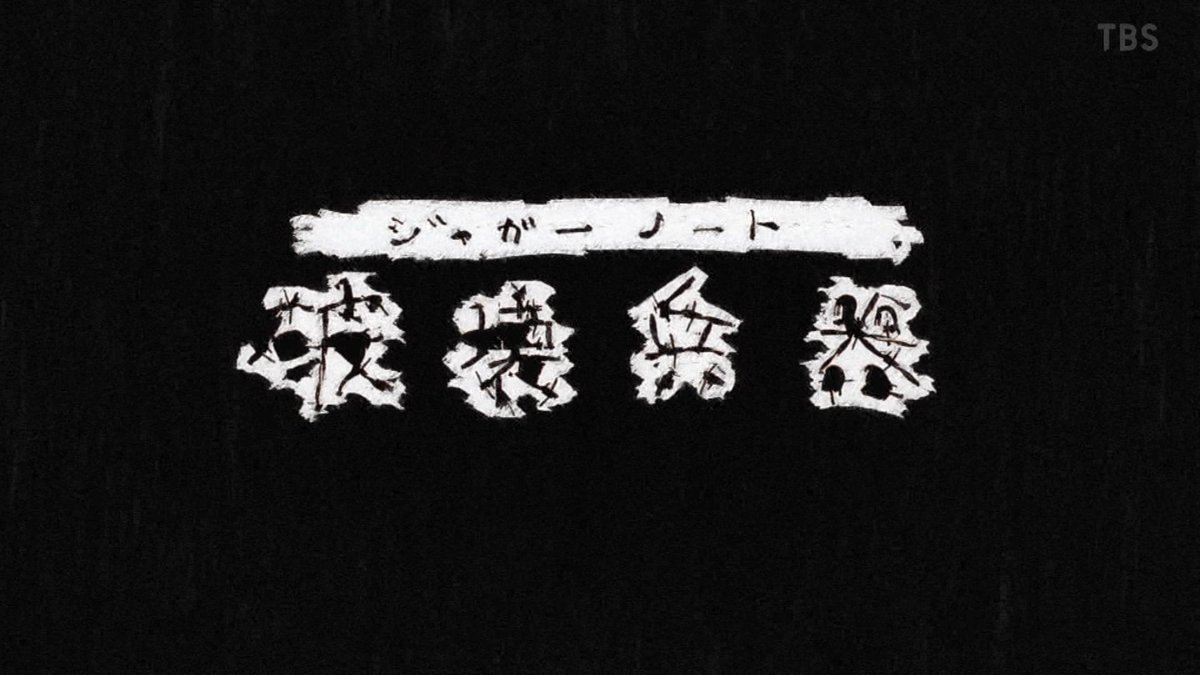 TBS
ジャガーノート
兵器